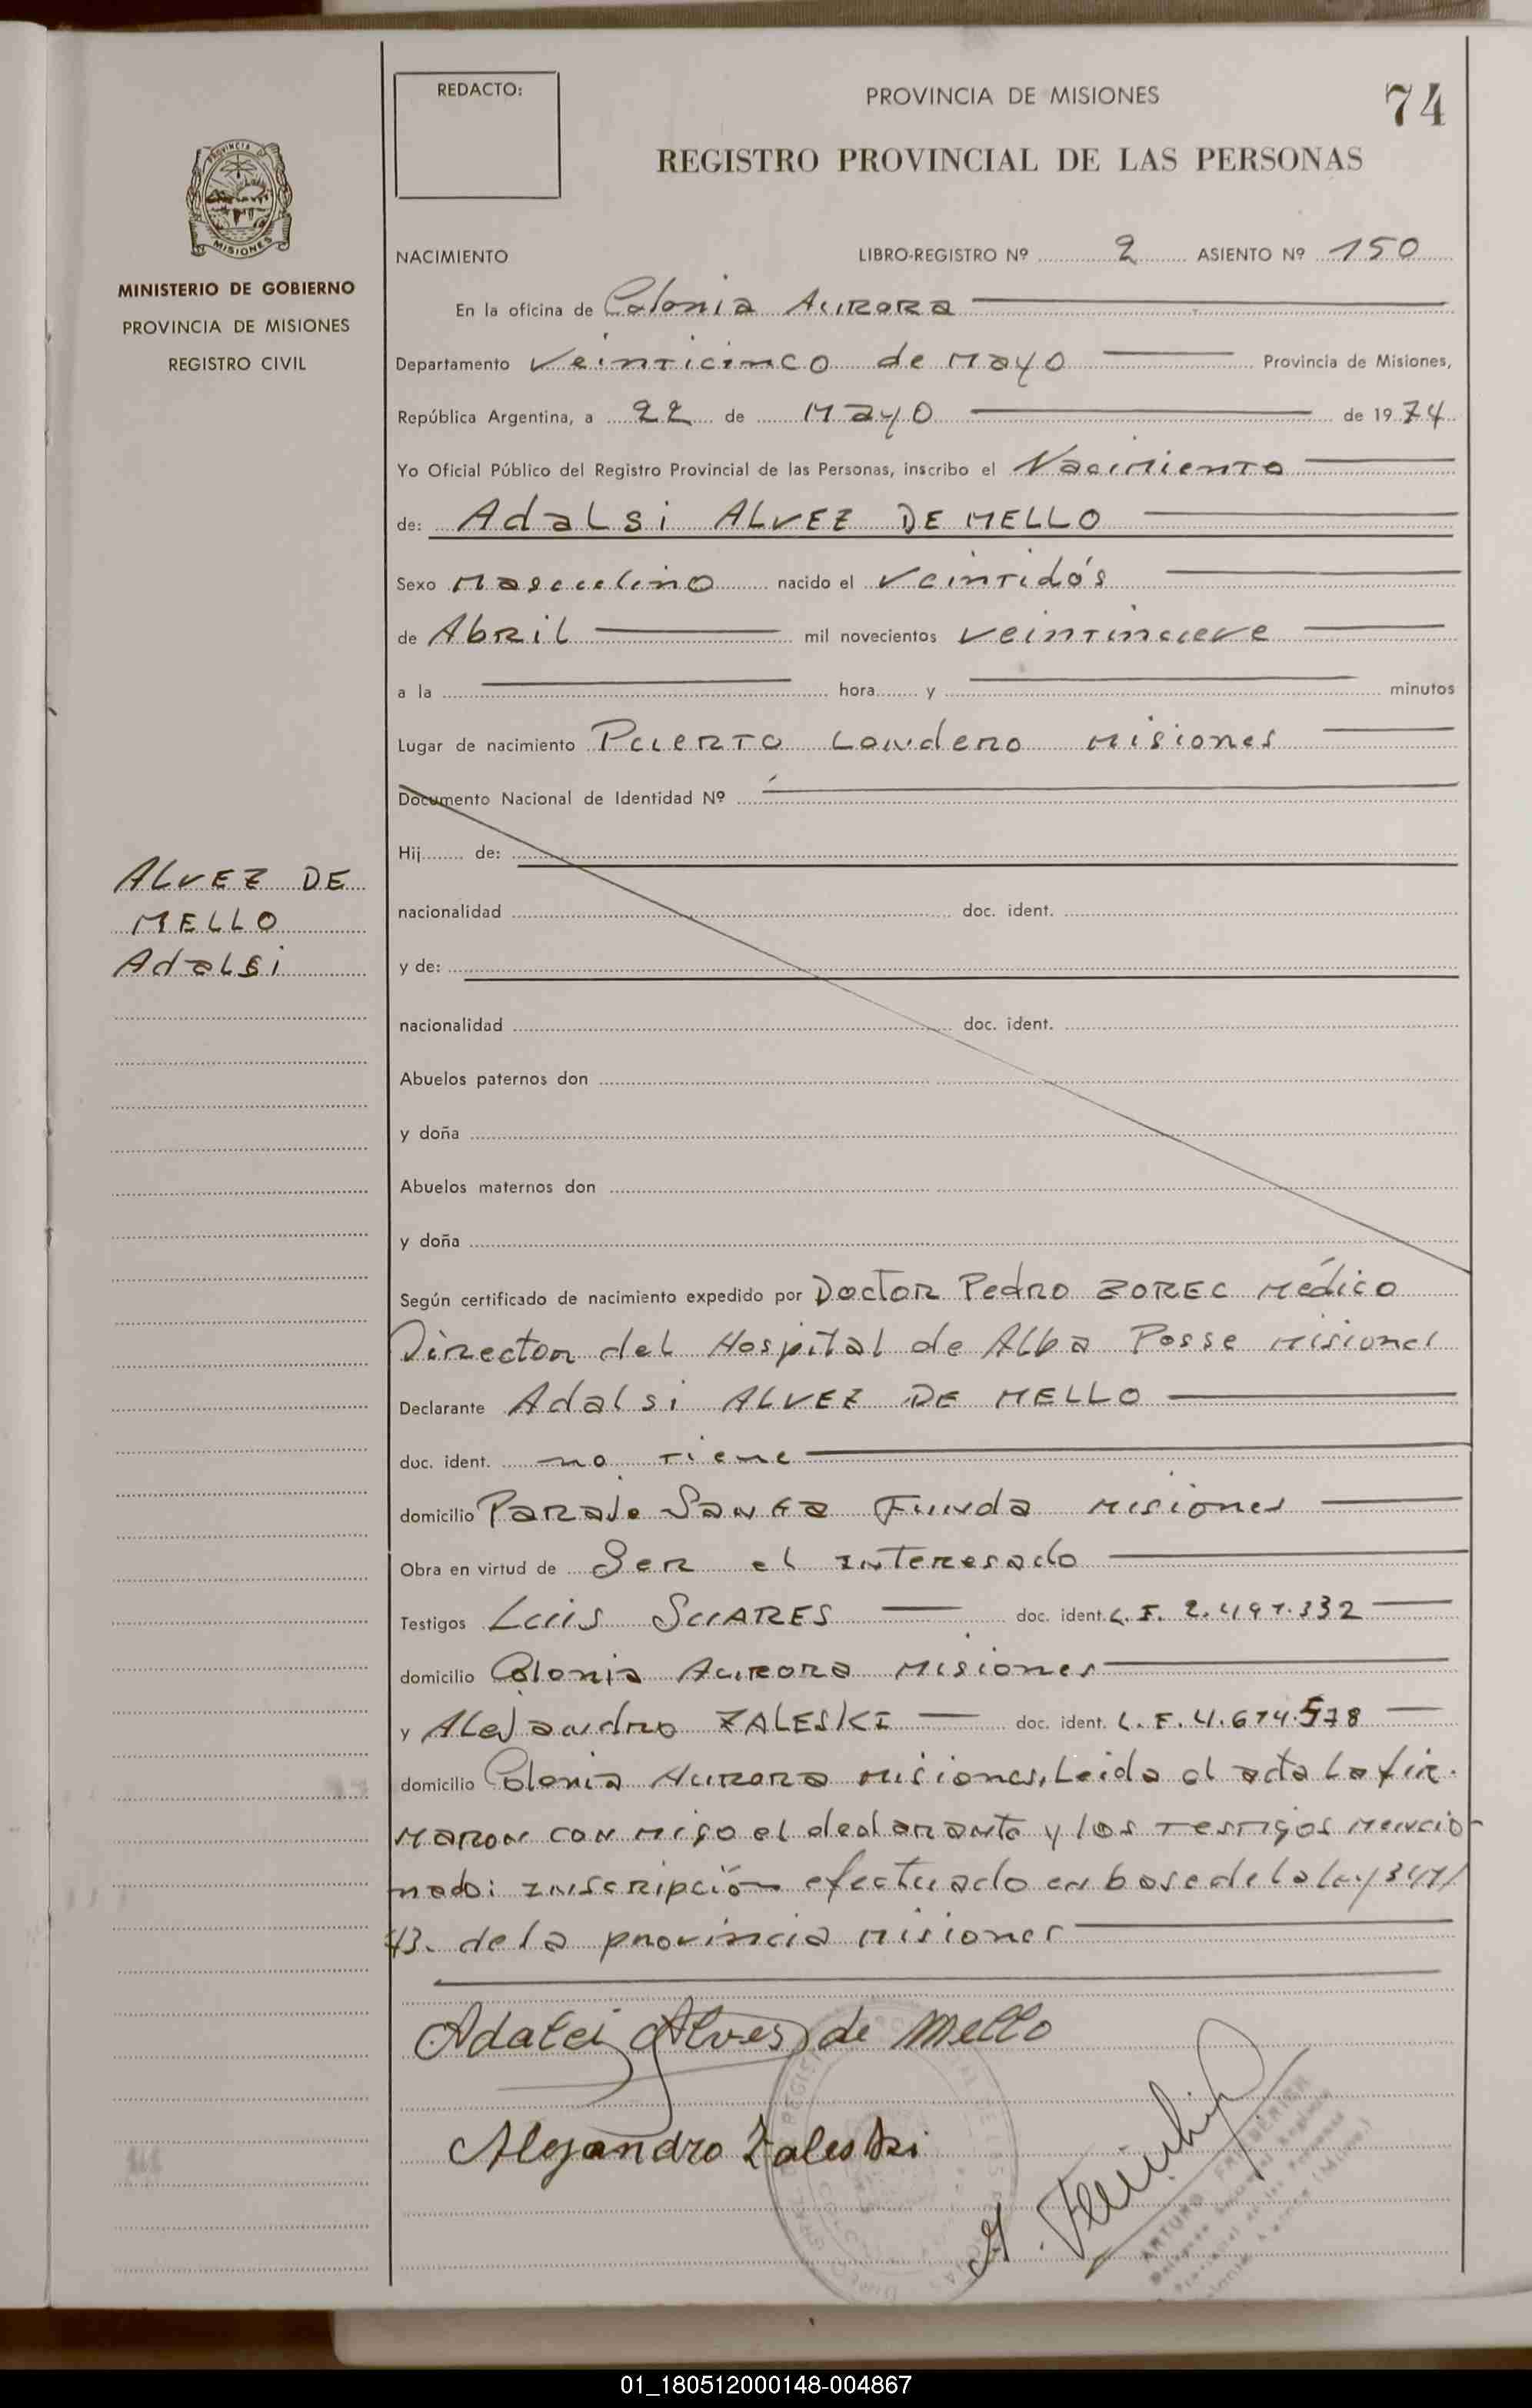 REDACTO:
PROVINCIA DE MISIONES
74
REGISTRO PROVINCIAL DE LAS PERSONAS
PROVINCIA DE
MISIONES
MINISTERIO DE GOBIERNO
PROVINCIA DE MISIONES
REGISTRO CIVIL
NACIMIENTO LIBRO-REGISTRO Nº 2 ASIENTO Nº 150
En la oficina de Colonia Aurora
Departamento Veinticinco de Mayo Provincia de Misiones,
República Argentina, a 22 de Mayo de 1974
Yo Oficial Público del Registro Provincial de las Personas, inscribo el Nacimiento
de: Adalsi ALVEZ DE MELLO
Sexo Masculino nacido el Veintidós
de Abril mil novecientos veintinueve
a la hora y minutos
Lugar de nacimiento Puerto Londero Misiones
Documento Nacional de Identidad Nº
Hij de:
ALVEZ DE
MELLO
Adalsi
nacionalidad doc. ident.
y de:
nacionalidad doc. ident.
Abuelos paternos don
y doña
Abuelos maternos don
y doña
Según certificado de nacimiento expedido por Doctor Pedro ZOREC Médico
Director del Hospital de Alba Posse Misiones
Declarante Adalsi ALVEZ DE MELLO
doc. ident. no tiene
domicilio Paraje Santa Misiones
Obra en virtud de Ser el interesado
Testigos Luis SUARES doc. ident.
domicilio Colonia Aurora Misiones
y Alejandro ZALESKI doc. ident.
domicilio Colonia Aurora Misiones, Leida el acta la fir.
maron con migo el declarante y los testigos mencio-
nado: inscripción efectuado en base de la ley
de la provincia misiones
Adalci Alves de Mello
Alejandro Zaleski
ARTURO
01_180512000148-004867